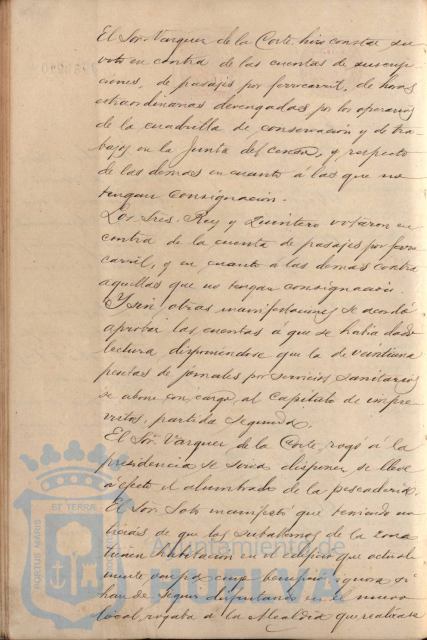 El Sor. Vazquez de la Corte hizo constar su
voto en contra de las cuentas de suscrip-
ciones, de pasajes por ferrocarril, de horas
extraordinarias devengadas por los operarios
de la cuadrilla de conservación y de tra-
bajos en la Junta del Censo, y respecto
de las demas en cuanto á las que no
tengan consignación.
Los Sres. Rey y Quintero votaron en
contra de la cuenta de pasajes por ferro
carril, y en cuanto á las demas contra
aquellas que no tengan consignación.
Y sin otras manifestaciones se acordó
aprobar las cuentas á que se habia dado
lectura, disponiendose que la de veintiuna
pesetas de jornales por servicios sanitarios
se abone con cargo al Capitulo de impre-
vistos, partida segunda.
El Sor. Vazquez de la Corte rogó á la
presidencia se sirva disponer se lleve
á efecto el alumbrado de la pescaderia.
El Sor. Soto manifestó que teniendo no-
ticias de que los subalternos de la zona
tienen habitacion en el edificio que actual
mente ocupa cuyo beneficio ignora si
han de seguir disfrutando en el nuevo
local, rogaba á la Alcaldia que realizase
PORTUS MARIS ET TERRAE
Ayuntamiento de
HUELVA